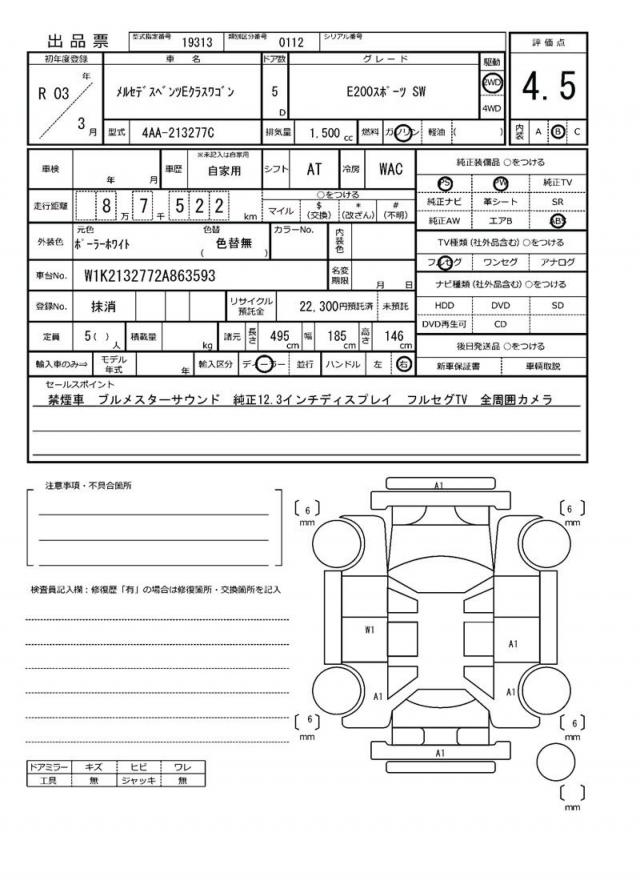 出品票 型式指定番号 19313 類別区分番号 0112 シリアル番号
評価点
4.5
内装 A B C
初年度登録 車名 ドア数 グレード 駆動
R 03 年 3 月
メルセデスベンツEクラスワゴン 5 D E200スポーツ SW 2WD 4WD
型式 4AA-213277C 排気量 1.500 cc 燃料 ガソリン 軽油 ( )
車検 年 月 車歴 ※未記入は自家用 自家用 シフト AT 冷房 WAC
走行距離 8 万 7 千 5 2 2 km
○をつける
マイル $ (交換) * (改ざん) # (不明)
外装色 元色 ポーラーホワイト 色替 ( 色替無 ) カラーNo. 内装色
車台No. W1K2132772A863593 名変期限 月 日
登録No. 抹消 リサイクル預託金 22,300円預託済 未預託
定員 5 ( ) 人 積載量 kg 諸元 長さ 495 cm 幅 185 cm 高さ 146 cm
輸入車のみ⇒ モデル年式 年 輸入区分 ディーラー 並行 ハンドル 左 右
純正装備品 ○をつける
PS PW 純正TV
純正ナビ 革シート SR
純正AW エアB ABS
TV種類 (社外品含む) ○をつける
フルセグ ワンセグ アナログ
ナビ種類 (社外品含む) ○をつける
HDD DVD SD
DVD再生可 CD
後日発送品 ○をつける
新車保証書 車輌取説
セールスポイント
禁煙車 ブルメスターサウンド 純正12.3インチディスプレイ フルセグTV 全周囲カメラ
注意事項・不具合箇所
検査員記入欄：修復歴「有」の場合は修復箇所・交換箇所を記入
ドアミラー キズ ヒビ ワレ
工具 無 ジャッキ 無
A1
[ 6 ] mm
[ 6 ] mm
W1
A1
A1
A1
[ 6 ] mm
[ 6 ] mm
A1
[ ] mm